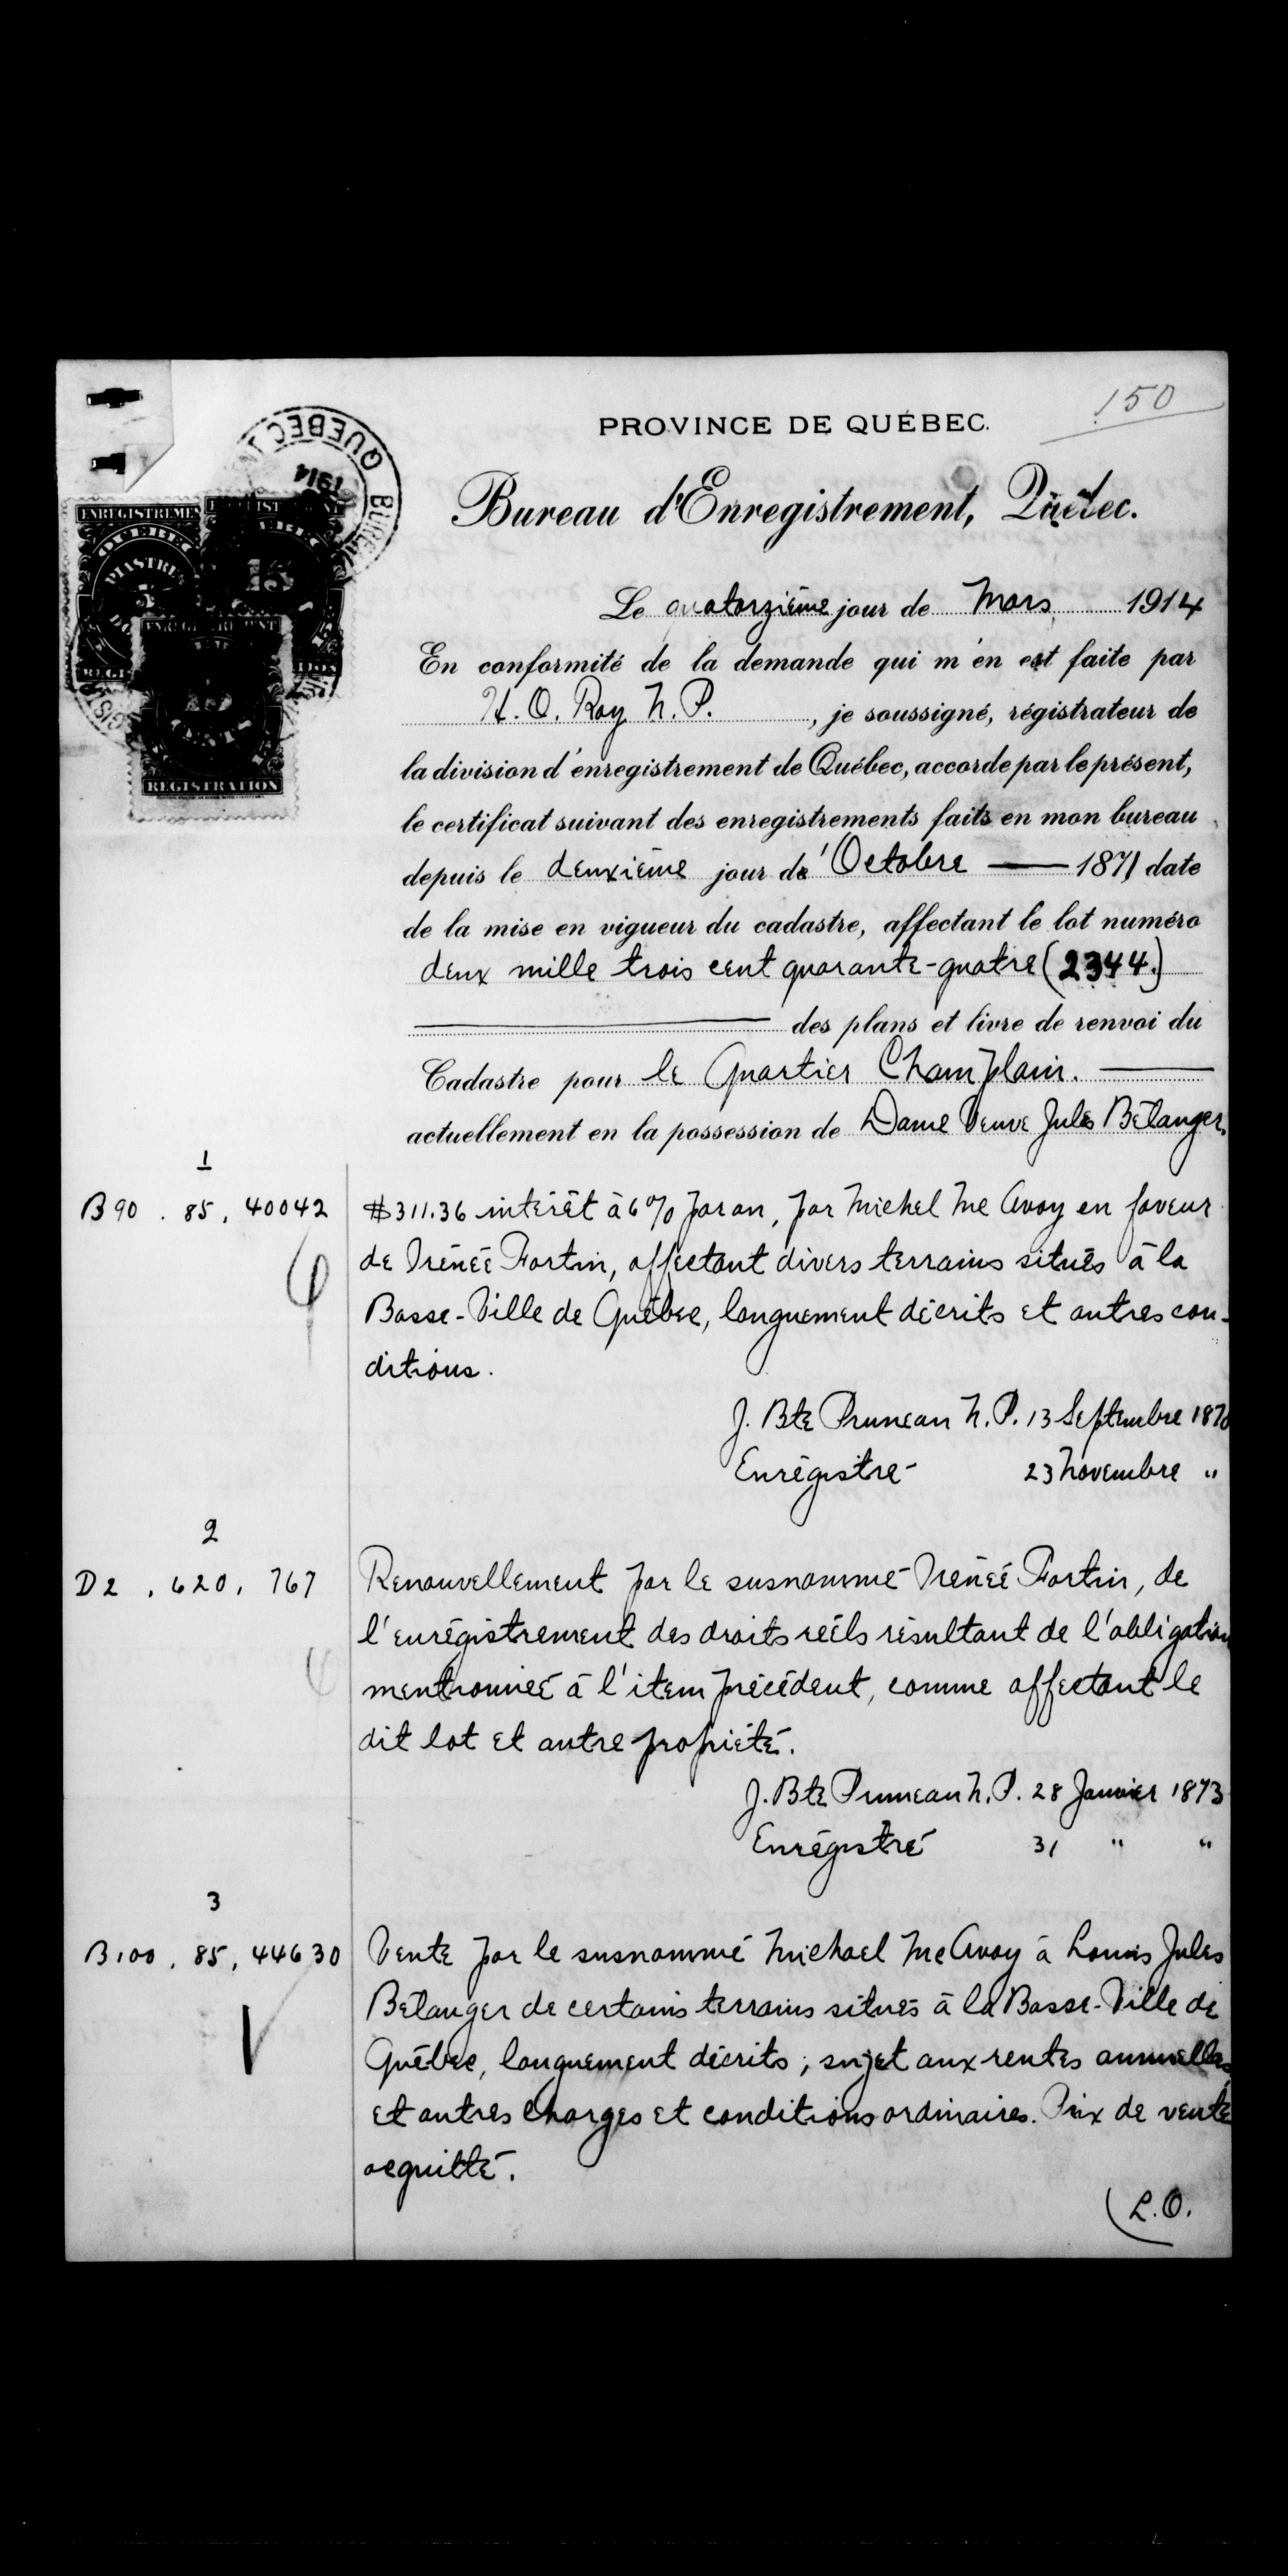 150
PROVINCE DE QUÉBEC.
Bureau d'Enregistrement, Québec.
QUEBEC
1914
ENREGISTREMEN
QUEBEC
PIASTRES
15
15
CENTS
REGISTRATION
Le quatorzième jour de Mars 1914
En conformité de la demande qui m'en est faite par
H. O. Roy N. P. , je soussigné, régistrateur de
la division d'enregistrement de Québec, accorde par le présent,
le certificat suivant des enregistrements faits en mon bureau
depuis le deuxième jour d'Octobre — 1871 date
de la mise en vigueur du cadastre, affectant le lot numéro
deux mille trois cent quarante-quatre (2344.)
— des plans et livre de renvoi du
Cadastre pour le Quartier Champlain. —
actuellement en la possession de Dame Veuve Jules Bélanger.
1
B 90 . 85 , 40042 $311.36 intérêt à 6% par an, par Michel Mc Avoy en faveur
de Irénée Fortin, affectant divers terrains situés à la
Basse-Ville de Québec, longuement décrits et autres con-
ditions.
J. Bte Pruneau N. P. 13 Septembre 1870
Enrégistré 23 Novembre "
2
D 2 , 620 , 767 Renouvellement par le susnommé Irénée Fortin, de
l'enrégistrement des droits réels résultant de l'obligation
mentionnée à l'item précédent, comme affectant le
dit lot et autre propriété.
J. Bte Pruneau N. P. 28 Janvier 1873
Enrégistré 31 " "
3
B 100 , 85 , 44630 Vente par le susnommé Michael McAvoy à Louis Jules
Bélanger de certains terrains situés à la Basse-Ville de
Québec, longuement décrits ; sujet aux rentes annuelles
et autres charges et conditions ordinaires. Prix de vente
acquitté.
(L.O.